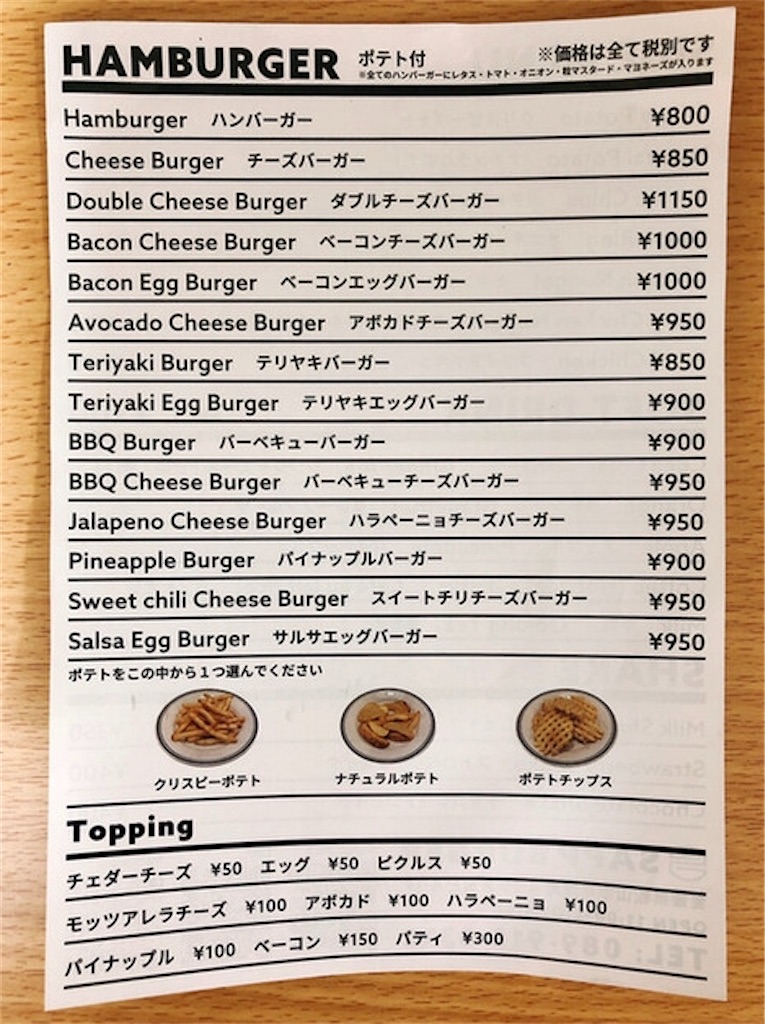 HAMBURGER ポテト付 ※価格は全て税別です
※全てのハンバーガーにレタス・トマト・オニオン・粒マスタード・マヨネーズが入ります
Hamburger ハンバーガー ¥800
Cheese Burger チーズバーガー ¥850
Double Cheese Burger ダブルチーズバーガー ¥1150
Bacon Cheese Burger ベーコンチーズバーガー ¥1000
Bacon Egg Burger ベーコンエッグバーガー ¥1000
Avocado Cheese Burger アボカドチーズバーガー ¥950
Teriyaki Burger テリヤキバーガー ¥850
Teriyaki Egg Burger テリヤキエッグバーガー ¥900
BBQ Burger バーベキューバーガー ¥900
BBQ Cheese Burger バーベキューチーズバーガー ¥950
Jalapeno Cheese Burger ハラペーニョチーズバーガー ¥950
Pineapple Burger パイナップルバーガー ¥900
Sweet chili Cheese Burger スイートチリチーズバーガー ¥950
Salsa Egg Burger サルサエッグバーガー ¥950
ポテトをこの中から1つ選んでください
クリスピーポテト ナチュラルポテト ポテトチップス
Topping
チェダーチーズ ¥50 エッグ ¥50 ピクルス ¥50
モッツアレラチーズ ¥100 アボカド ¥100 ハラペーニョ ¥100
パイナップル ¥100 ベーコン ¥150 パティ ¥300